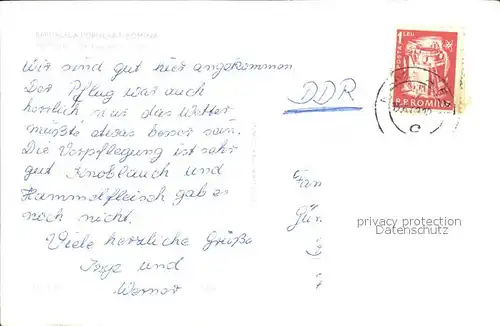 REPUBLICA POPULARĂ ROMÎNĂ
Wir sind gut hier angekommen
Der Pflug war auch
herrlich nur das Wetter
müßte etwas besser sein.
Die Verpflegung ist sehr
gut Knoblauch und
Hammelfleisch gab es
noch nicht.
Viele herzliche Grüße
Inge und
Werner
DDR
POSTA 1 LEU
R.P.ROMINA
C
Fam
Gün
privacy protection
Datenschutz